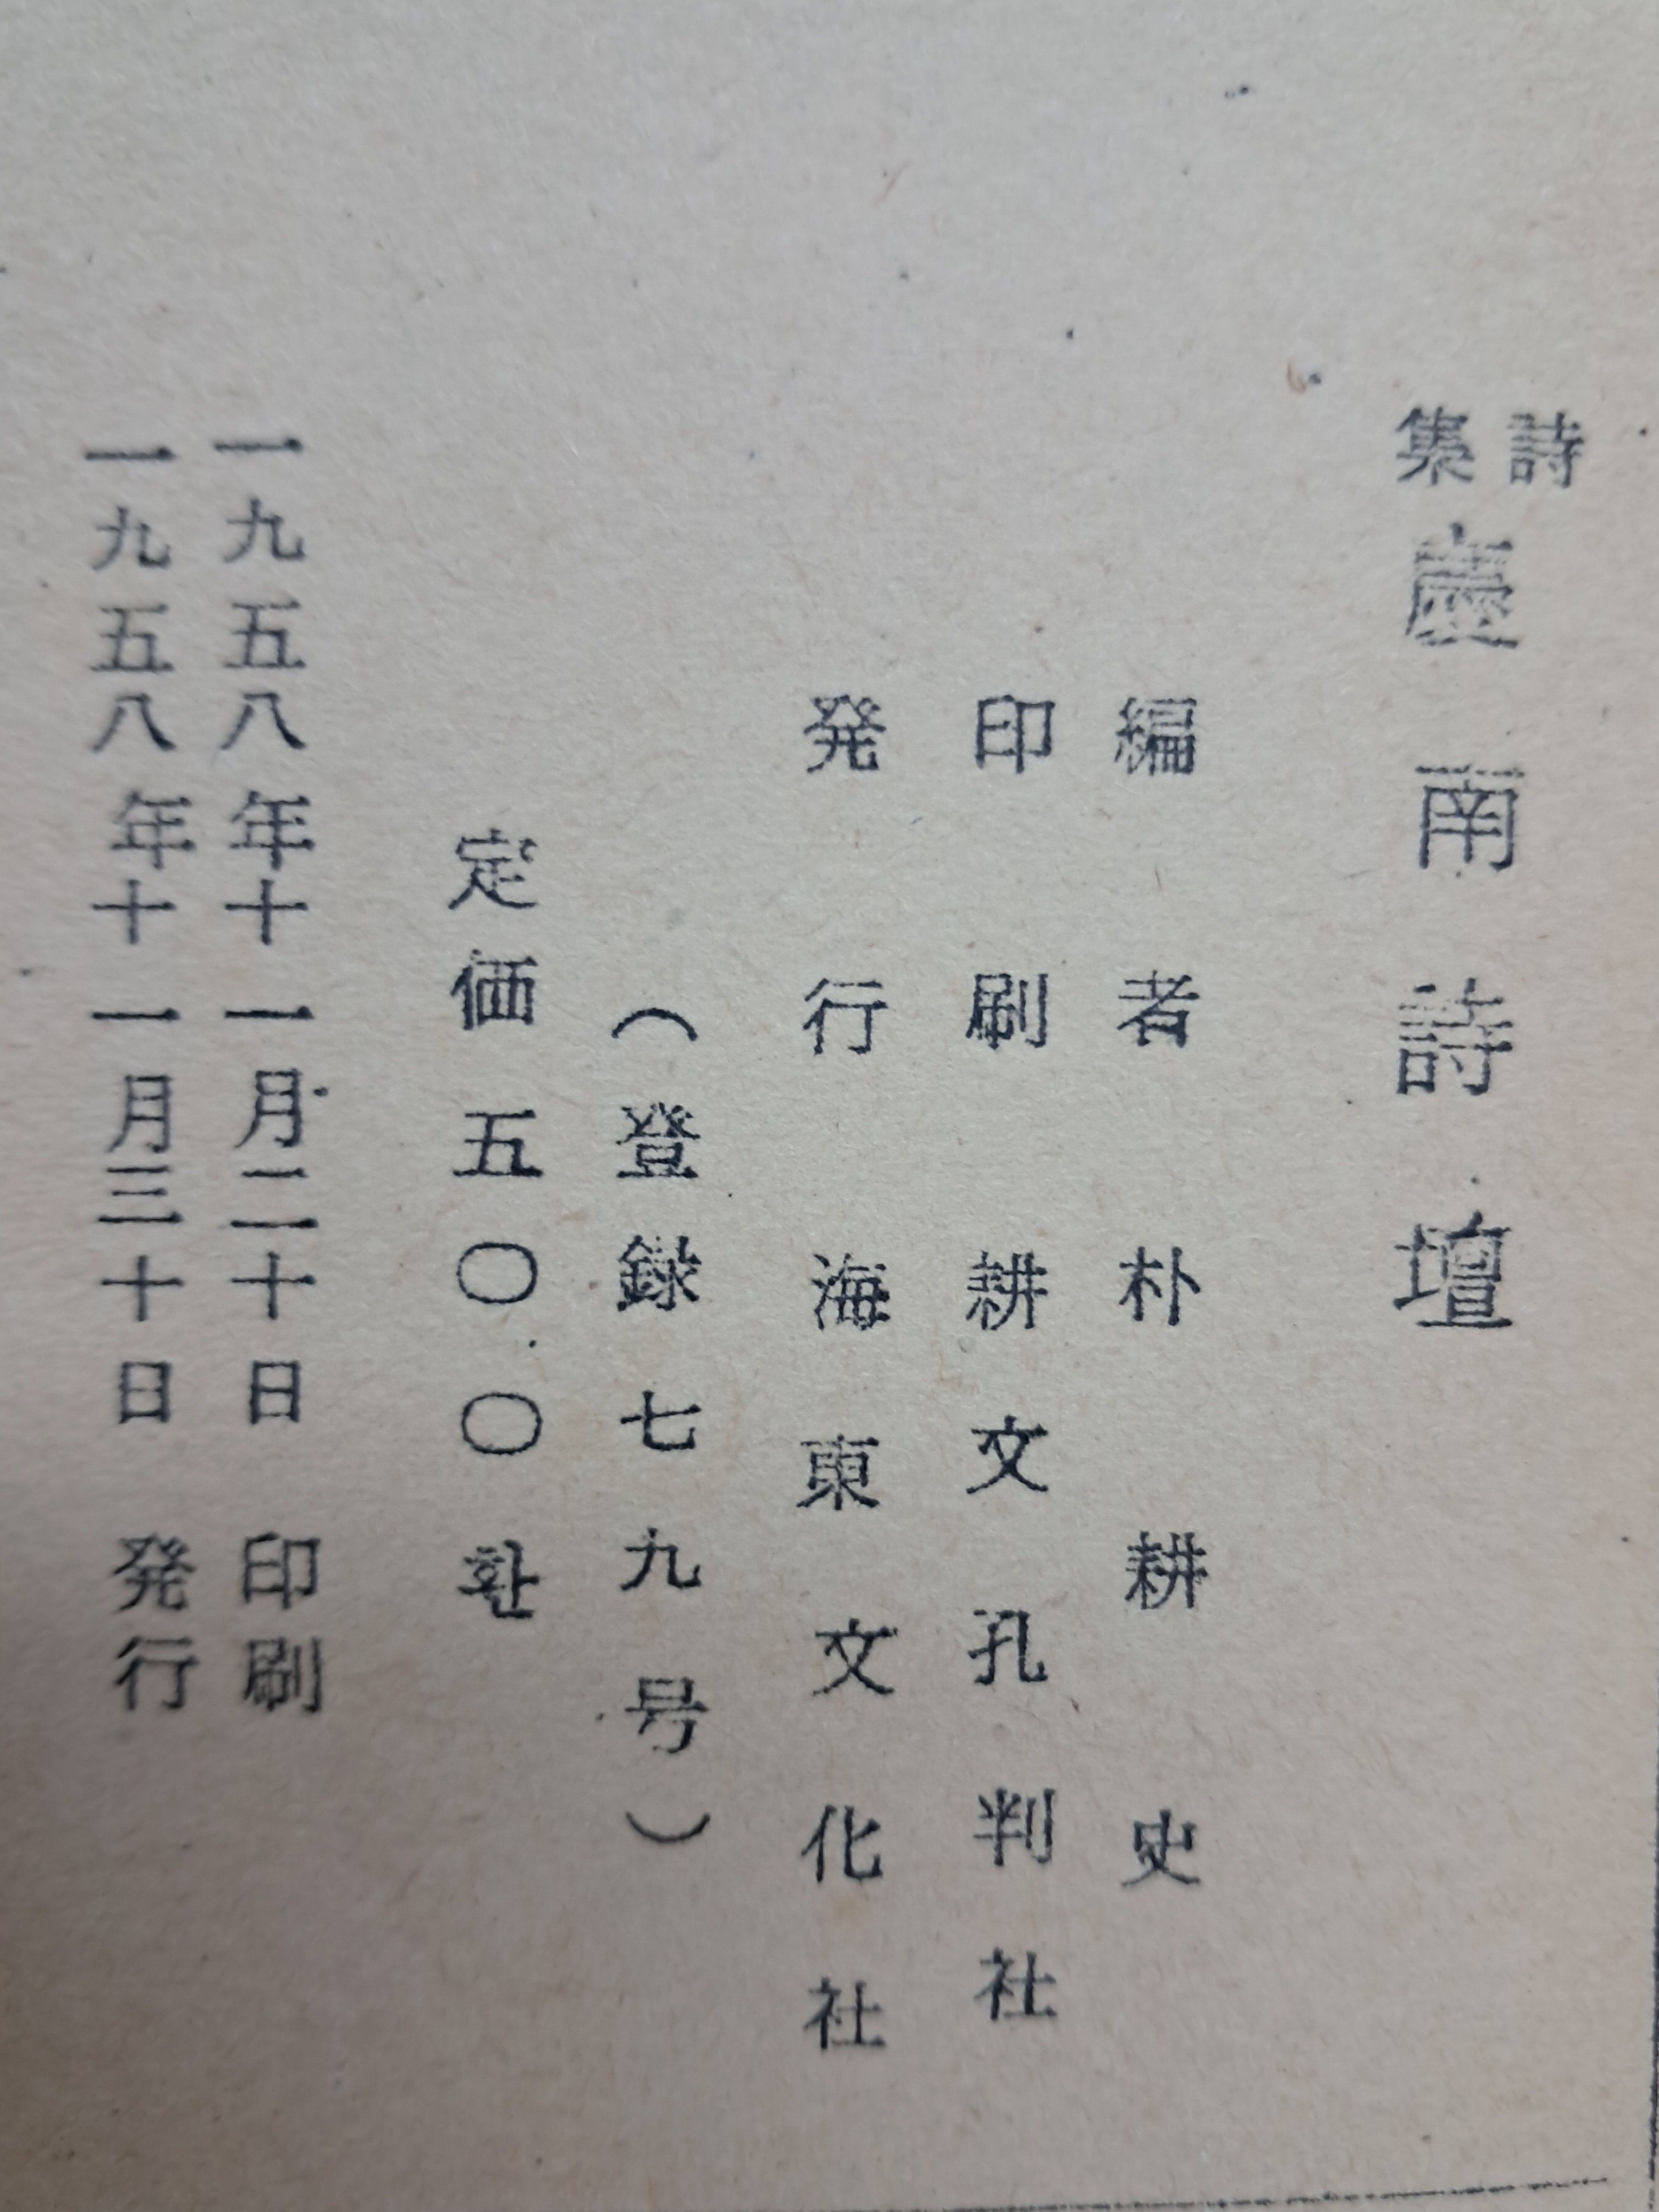 詩集 慶南詩壇
編者 朴耕史
印刷 耕文孔判社
発行 海東文化社
(登録七九号)
定価五〇〇환
一九五八年十一月二十日 印刷
一九五八年十一月三十日 発行